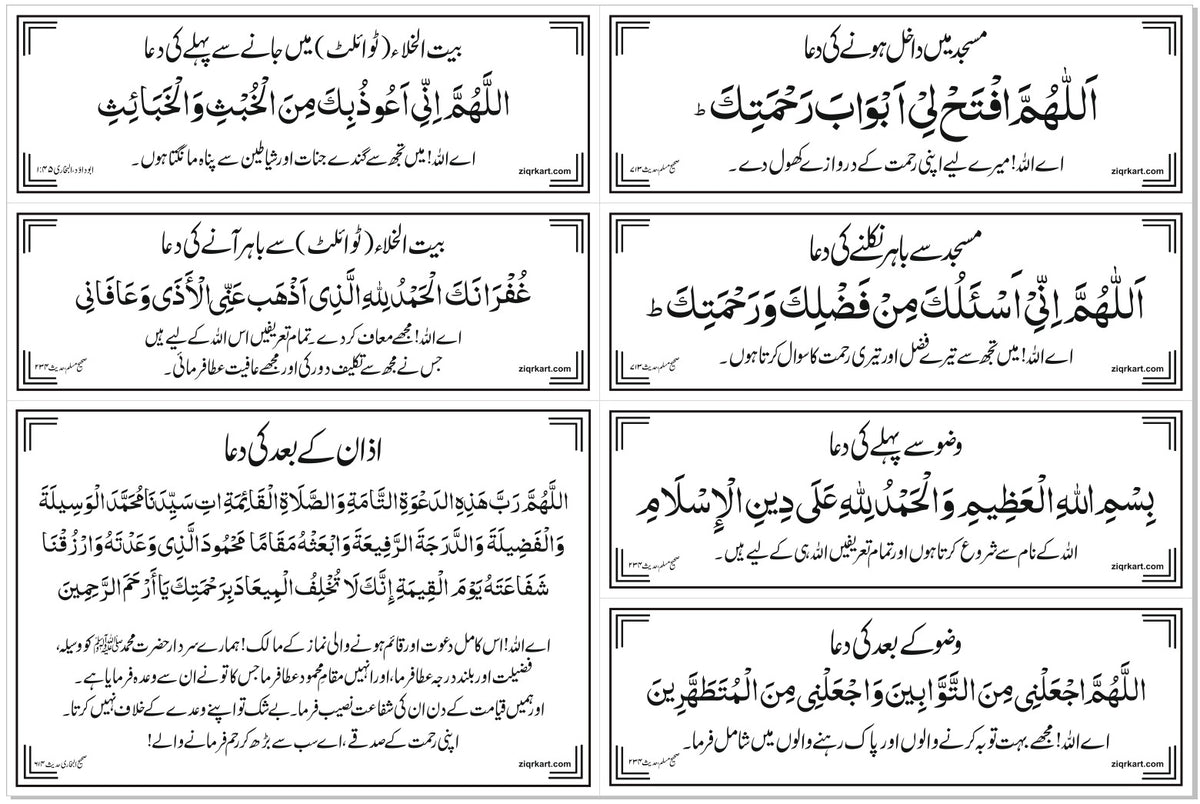 مسجد میں داخل ہونے کی دعا
اَللّٰهُمَّ افْتَحْ لِیْ اَبْوَابَ رَحْمَتِكَ ط
اے اللہ! میرے لیے اپنی رحمت کے دروازے کھول دے۔
صحیح مسلم حدیث ۷۱۳
ziqrkart.com
مسجد سے باہر نکلنے کی دعا
اَللّٰهُمَّ اِنِّیْ اَسْئَلُكَ مِنْ فَضْلِكَ وَرَحْمَتِكَ ط
اے اللہ! میں تجھ سے تیرے فضل اور تیری رحمت کا سوال کرتا ہوں۔
صحیح مسلم حدیث ۷۱۳
ziqrkart.com
وضو سے پہلے کی دعا
بِسْمِ اللهِ الْعَظِيمِ وَالْحَمْدُ لِلّٰهِ عَلَى دِينِ الْإِسْلَامِ
اللہ کے نام سے شروع کرتا ہوں اور تمام تعریفیں اللہ ہی کے لیے ہیں۔
صحیح مسلم حدیث ۲۳۴
ziqrkart.com
وضو کے بعد کی دعا
اللَّهُمَّ اجْعَلْنِى مِنَ التَّوَّابِينَ وَاجْعَلْنِى مِنَ الْمُتَطَهَّرِينَ
اے اللہ! مجھے بہت توبہ کرنے والوں اور پاک رہنے والوں میں شامل فرما۔
صحیح مسلم حدیث ۲۳۴
ziqrkart.com
بیت الخلاء (ٹوائلٹ) میں جانے سے پہلے کی دعا
اللَّهُمَّ اِنِّى اَعُوذُ بِكَ مِنَ الْخُبْثِ وَالْخَبَائِثِ
اے اللہ! میں تجھ سے گندے جنات اور شیاطین سے پناہ مانگتا ہوں۔
ابوداؤد، البخاری ۱:۴۵
ziqrkart.com
بیت الخلاء (ٹوائلٹ) سے باہر آنے کی دعا
غُفْرَانَكَ الْحَمْدُ لِلّٰهِ الَّذِى اَذْهَبَ عَنِّى الْأَذَى وَعَافَانِى
اے اللہ! مجھے معاف کر دے۔ تمام تعریفیں اس اللہ کے لیے ہیں
جس نے مجھ سے تکلیف دور کی اور مجھے عافیت عطا فرمائی۔
صحیح مسلم حدیث ۲۳۴
ziqrkart.com
اذان کے بعد کی دعا
اللَّهُمَّ رَبَّ هَذِهِ الدَعْوَةِ التَّامَةِ وَالصَّلَاةِ الْقَائِمَةِ اتِ سَيِّدَنَا مُحَمَّدَ الْوَسِيلَةَ
وَالْفَضِيلَةَ وَالدَّرَجَةَ الرَّفِيعَةَ وَابْعَثْهُ مَقَامًا مَحْمُودَ الَّذِى وَعَدْتَهُ وَارْزُقْنَا
شَفَاعَتَهُ يَوْمَ الْقِيمَةِ إِنَّكَ لَا تُخْلِفُ الْمِيعَادَ بِرَحْمَتِكَ يَا أَرْحَمَ الرَّحِمِينَ
اے اللہ! اس کامل دعوت اور قائم ہونے والی نماز کے مالک! ہمارے سردار حضرت محمد ﷺ کو وسیلہ،
فضیلت اور بلند درجہ عطا فرما، اور انہیں مقامِ محمود عطا فرما جس کا تو نے ان سے وعدہ فرمایا ہے۔
اور ہمیں قیامت کے دن ان کی شفاعت نصیب فرما۔ بے شک تو اپنے وعدے کے خلاف نہیں کرتا۔
اپنی رحمت کے صدقے، اے سب سے بڑھ کر رحم فرمانے والے!
صحیح البخاری حدیث ۶۱۴
ziqrkart.com